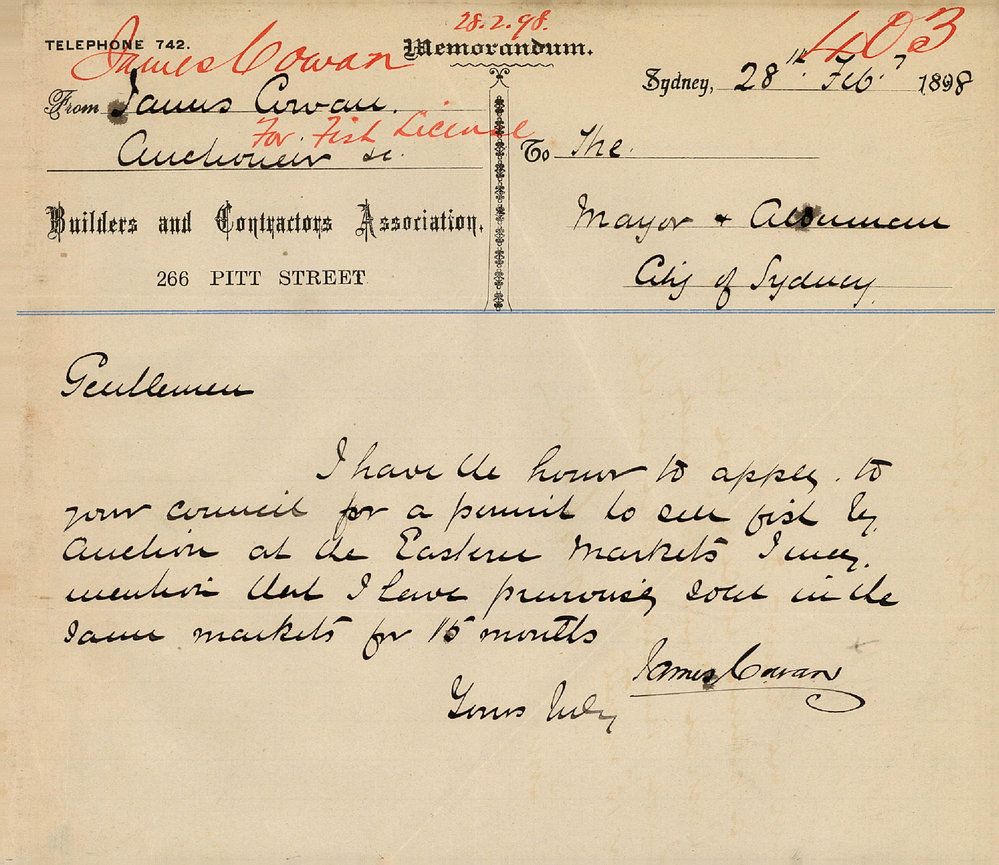 28.2.98.
403
TELEPHONE 742.
James Cowan
Memorandum.
Sydney, 28th Feby 1898
From James Cowan.
For Fish License
Auctioneer &c.
To The
Builders and Contractors Association.
Mayor + Aldermen
266 PITT STREET
City of Sydney.
Gentlemen
I have the honor to apply to
your council for a permit to sell fish by
Auction at the Eastern Markets I may
mention that I have previously sold in the
same markets for 15 months
James Cowan
Yours truly